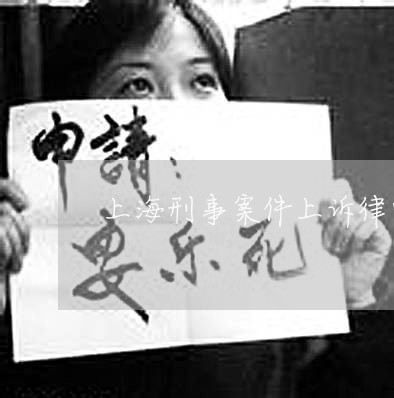 申請：
上海刑事案件上诉律
安乐死